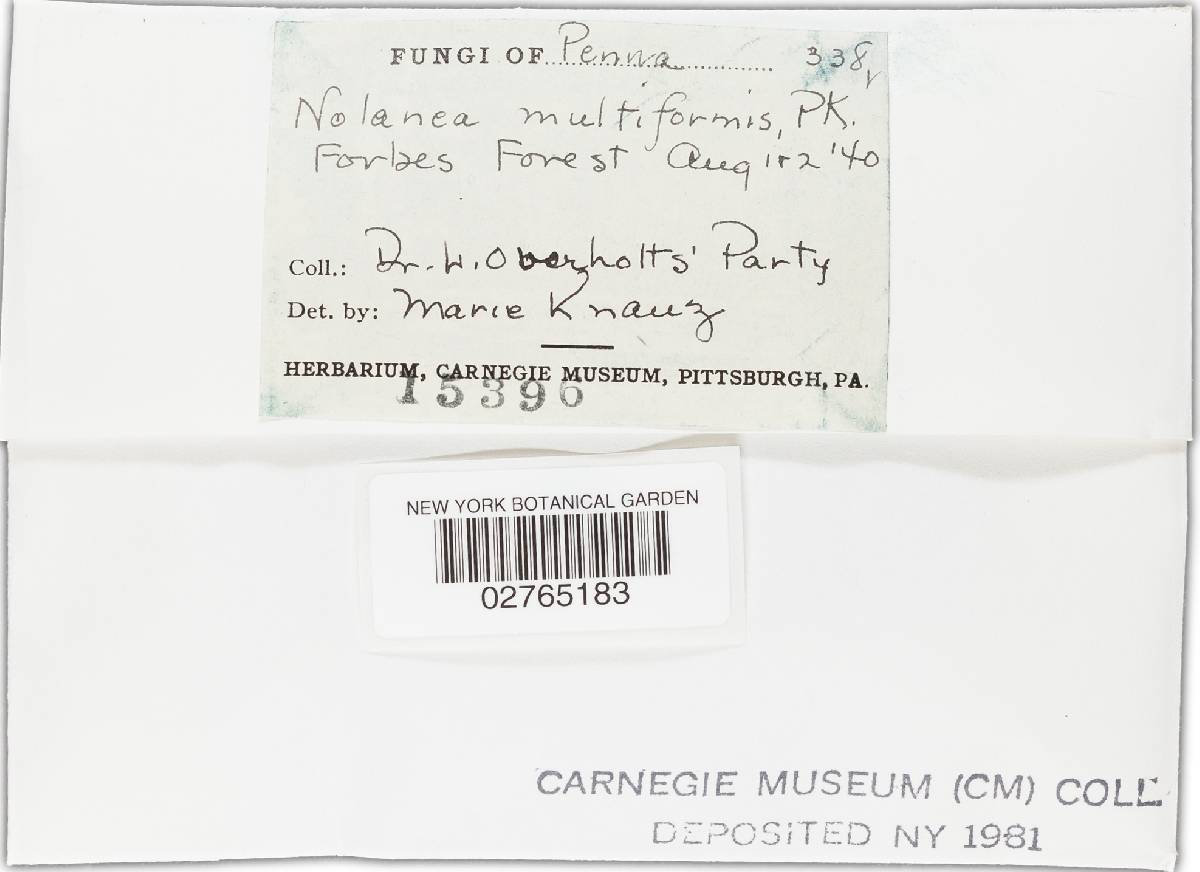 FUNGI OF Penna 338
Nolanea multiformis, PK.
Forbes Forest Aug 1+2 '40
Coll.: Dr. L. Oberholts' Party
Det. by: Marie Knauz
HERBARIUM, CARNEGIE MUSEUM, PITTSBURGH, PA.
15396
NEW YORK BOTANICAL GARDEN
02765183
CARNEGIE MUSEUM (CM) COLL.
DEPOSITED NY 1981